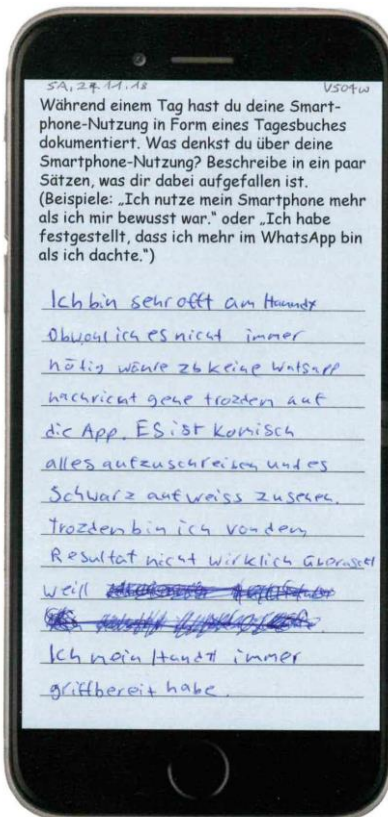 SA, 24.11.18 VS04w
Während einem Tag hast du deine Smart-
phone-Nutzung in Form eines Tagesbuches
dokumentiert. Was denkst du über deine
Smartphone-Nutzung? Beschreibe in ein paar
Sätzen, was dir dabei aufgefallen ist.
(Beispiele: „Ich nutze mein Smartphone mehr
als ich mir bewusst war.“ oder „Ich habe
festgestellt, dass ich mehr im WhatsApp bin
als ich dachte.“)
Ich bin sehr offt am Hanndy
Obwohl ich es nicht immer
nötig wänre zb keine Watsapp
nachricht gehe trozden auf
die App. ES ist komisch
alles aufzuschreiben und es
Schwarz auf weiss zusehen.
Trozden bin ich von dem
Resultat nicht wirklich
weill
Ich mein Handy immer
griffbereit habe.